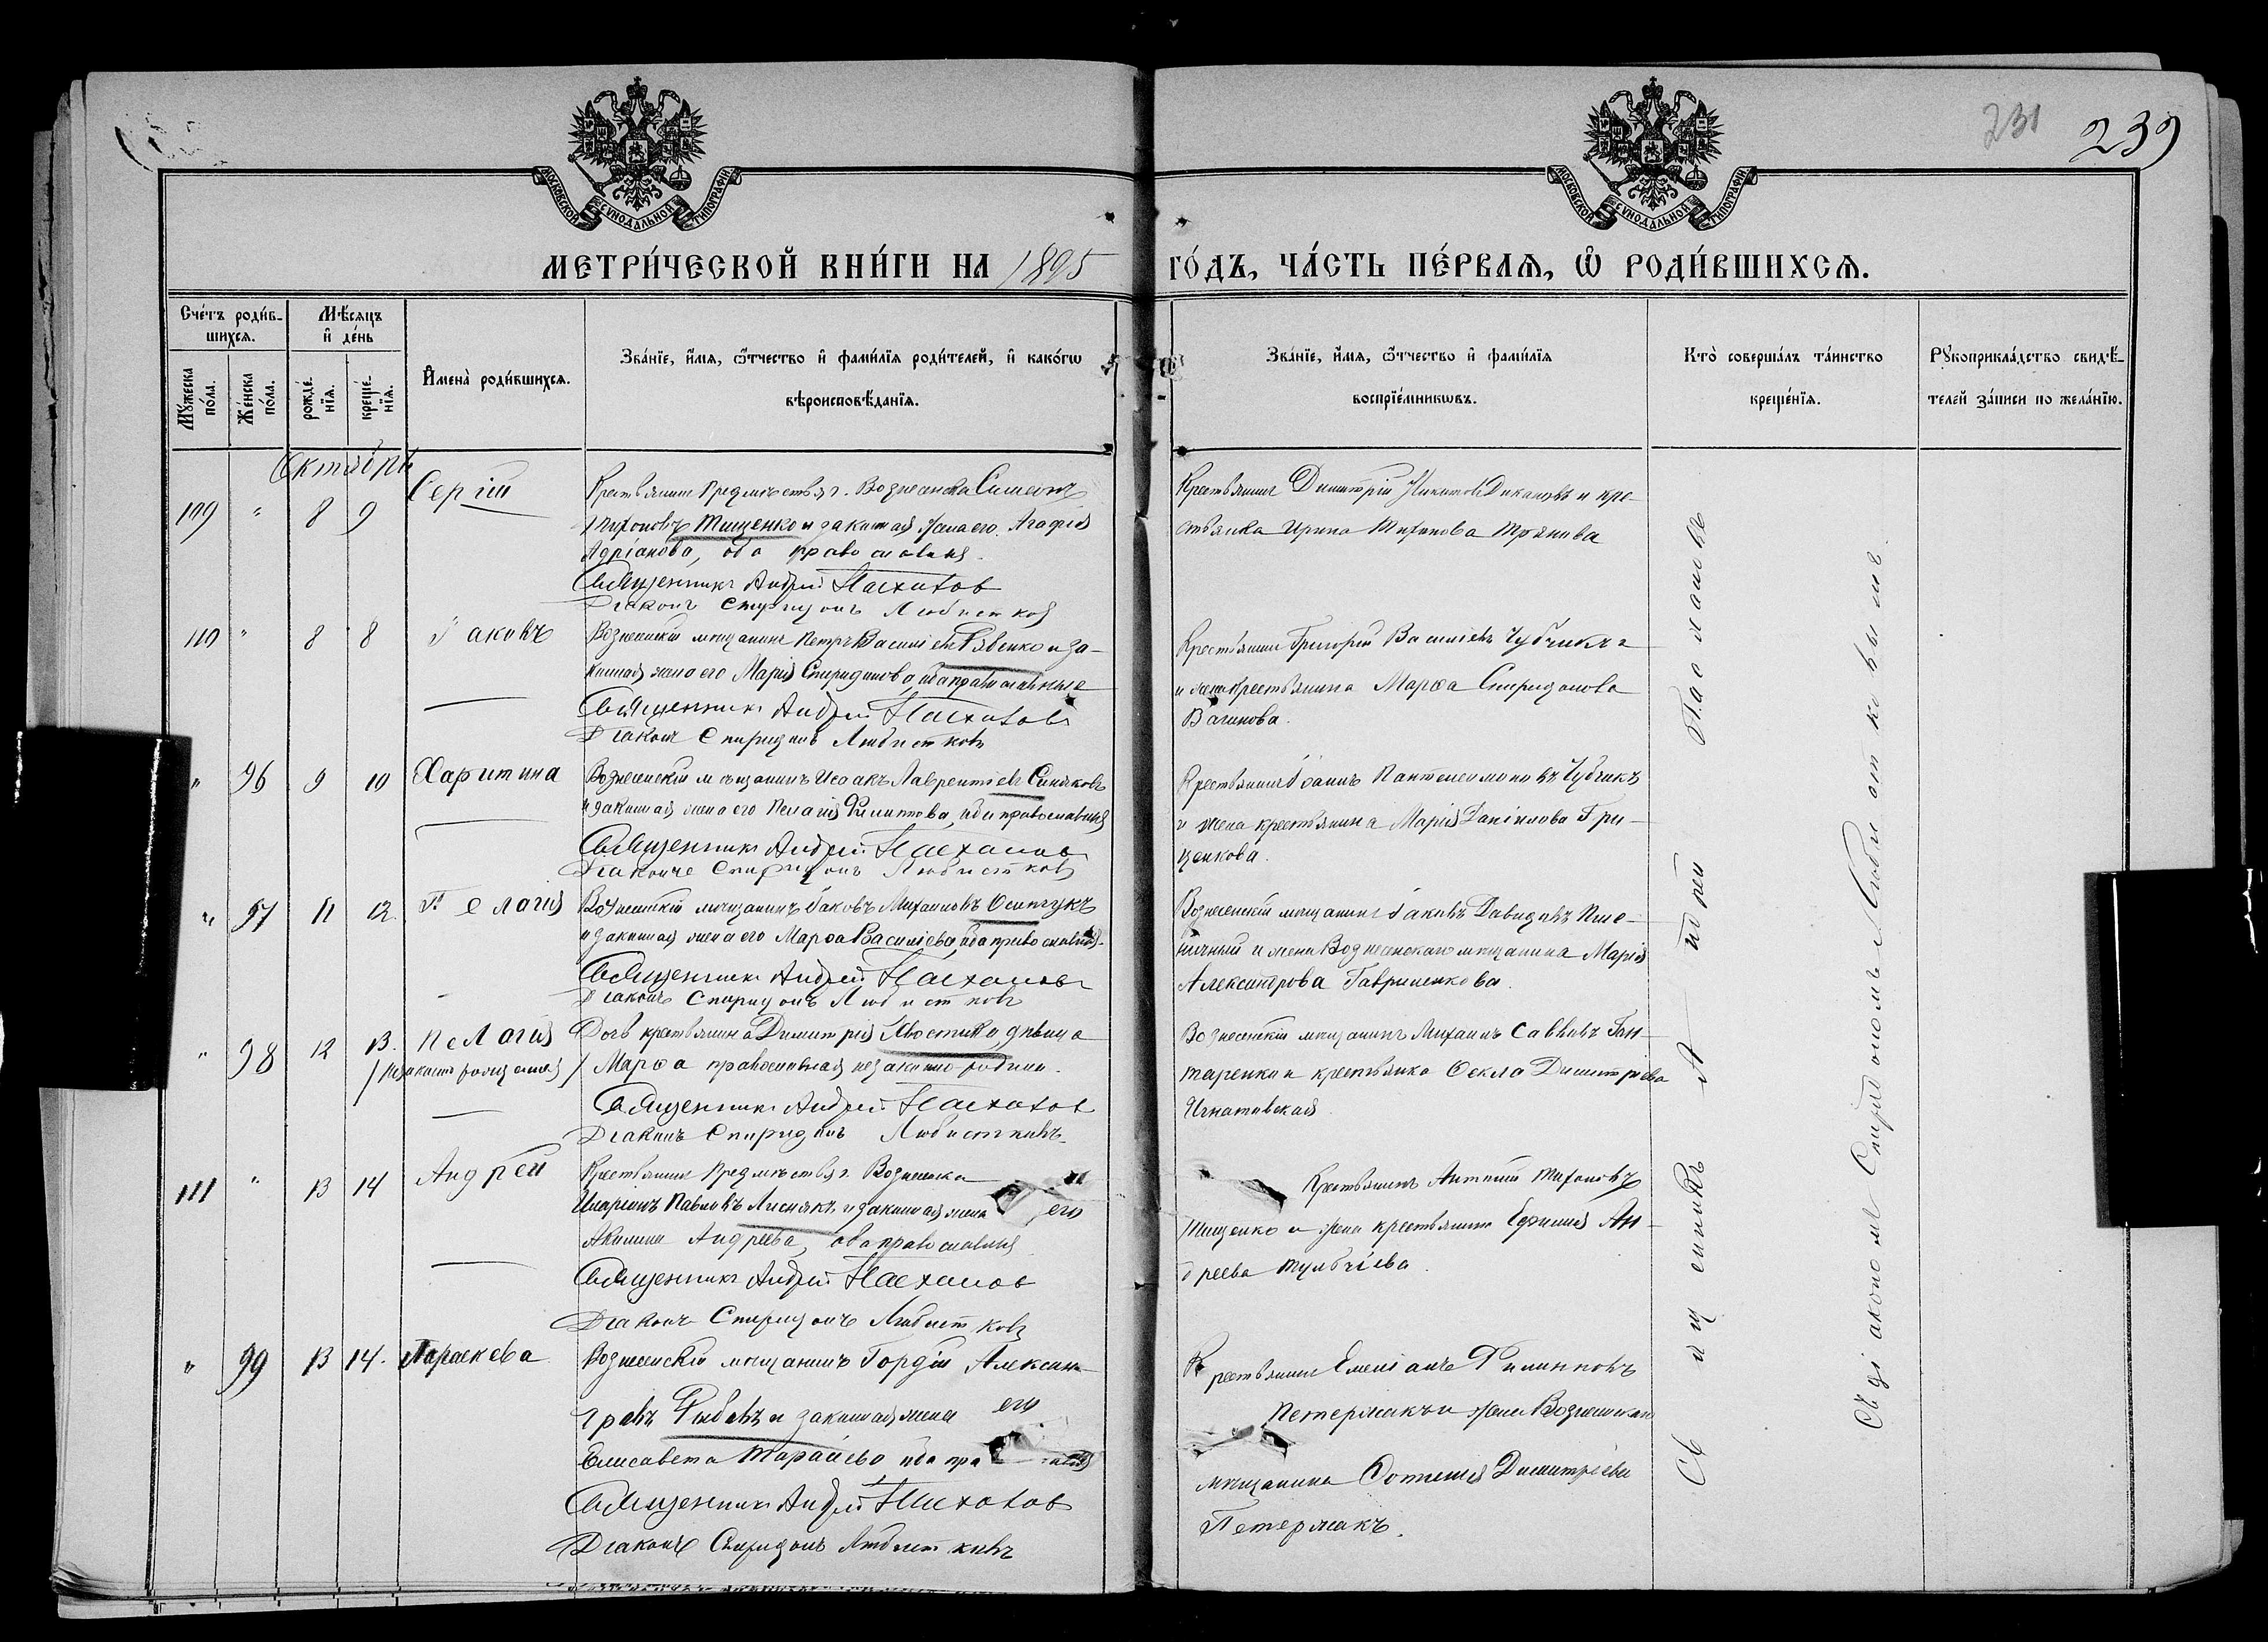 231 239
МОСКОВСКОЙ СѴНОДАЛЬНОЙ ТИПОГРАФІИ
МОСКОВСКОЙ СѴНОДАЛЬНОЙ ТИПОГРАФІИ
МЕТРИ́ЧЕСКОЙ КНИ́ГИ НА 1895 ГО́ДЪ, ЧА́СТЬ ПЕ́РВАѦ, Ѡ҆ РОДИ́ВШИХСѦ.
Сче́тъ роди́в-
шихсѧ.
Мꙋ́жеска по́ла.
Же́нска по́ла.
Мѣ́сѧцъ
и҆ де́нь
рожде́-
нїѧ.
креще́-
нїѧ.
И҆мена̀ роди́вшихсѧ.
Зва́нїе, и҆́мѧ, ѻ҆́тчество и҆ фами́лїѧ роди́телей, и҆ како́гѡ
вѣроисповѣ́данїѧ.
Зва́нїе, и҆́мѧ, ѻ҆́тчество и҆ фами́лїѧ
воспрїе́мникѡвъ.
Кто̀ соверша́лъ та́инство
креще́нїѧ.
Рꙋкоприкла́дство свидѣ́-
телей за́писи по жела́нїю.
Октябрь
109 " 8 9 Сергій
Крестьянинъ Предмѣстья г. Вознесенска Симеонъ
Тихоновъ Тищенко и законная жена его Агафія
Адріанова, оба православные.
Священникъ Андрей
Діаконъ Спиридонъ Любистковъ
Крестьянинъ Димитрій и кре-
стьянка Ирина Тихонова
110 " 8 8 Іаковъ
Вознесенскій мѣщанинъ Петръ Васильевъ и за-
конная жена его Марія Спиридонова, оба православные
Священникъ Андрей
Діаконъ Спиридонъ Любистковъ
Крестьянинъ Григорій Васильевъ Чубчикъ
и жена крестьянина Марѳа Спиридонова
Вагинова.
" 96 9 10 Харитина
Вознесенскій мѣщанинъ Исаакъ Лаврентіевъ Синяковъ
и законная жена его Пелагія Филиппова, оба православные
Священникъ Андрей
Діаконъ Спиридонъ Любистковъ
Крестьянинъ Іоаннъ Пантелеимоновъ Чубчикъ
и жена крестьянина Марія Даніилова Гри-
ценкова.
" 97 11 12 Пелагія
Вознесенскій мѣщанинъ Іаковъ Михаиловъ Осипчукъ
и законная жена его Марѳа Васильева, оба православные.
Священникъ Андрей
Діаконъ Спиридонъ Любистковъ
Вознесенскій мѣщанинъ Іаковъ Давидовъ Пше-
ничный и жена Вознесенскаго мѣщанина Марія
Александрова Гавриленкова.
" 98 12 13. Пелагія
/незаконнорожденная/
Дочь крестьянина Димитрія дѣвица
Марѳа православная незаконно родила.
Священникъ Андрей
Діаконъ Спиридонъ Любистковъ
Вознесенскій мѣщанинъ Михаилъ Саввовъ Гон-
таренко и крестьянка Ѳекла Димитріева
Игнатовская
111 " 13 14 Андрей
Крестьянинъ Предмѣстья г. Вознесенска
Иларіонъ Павловъ Лиснякъ и законная жена его
Акилина Андреева, оба православные
Священникъ Андрей
Діаконъ Спиридонъ Любистковъ
Крестьянинъ Антоній Тихоновъ
Тищенко и жена крестьянина Евфимія Ан-
дреева
" 99 13 14. Параскева
Вознесенскій мѣщанинъ Гордій Алексан-
дровъ и законная жена его
Елисавета Тарасьева оба пра
Священникъ Андрей
Діаконъ Спиридонъ Любистковъ
Крестьянинъ Емеліанъ Филипповъ
Петержакъ и жена Вознесенскаго
мѣщанина Фотинія Димитріева
Петержакъ.
Священникъ
Съ діакономъ Спиридономъ Любистковымъ.